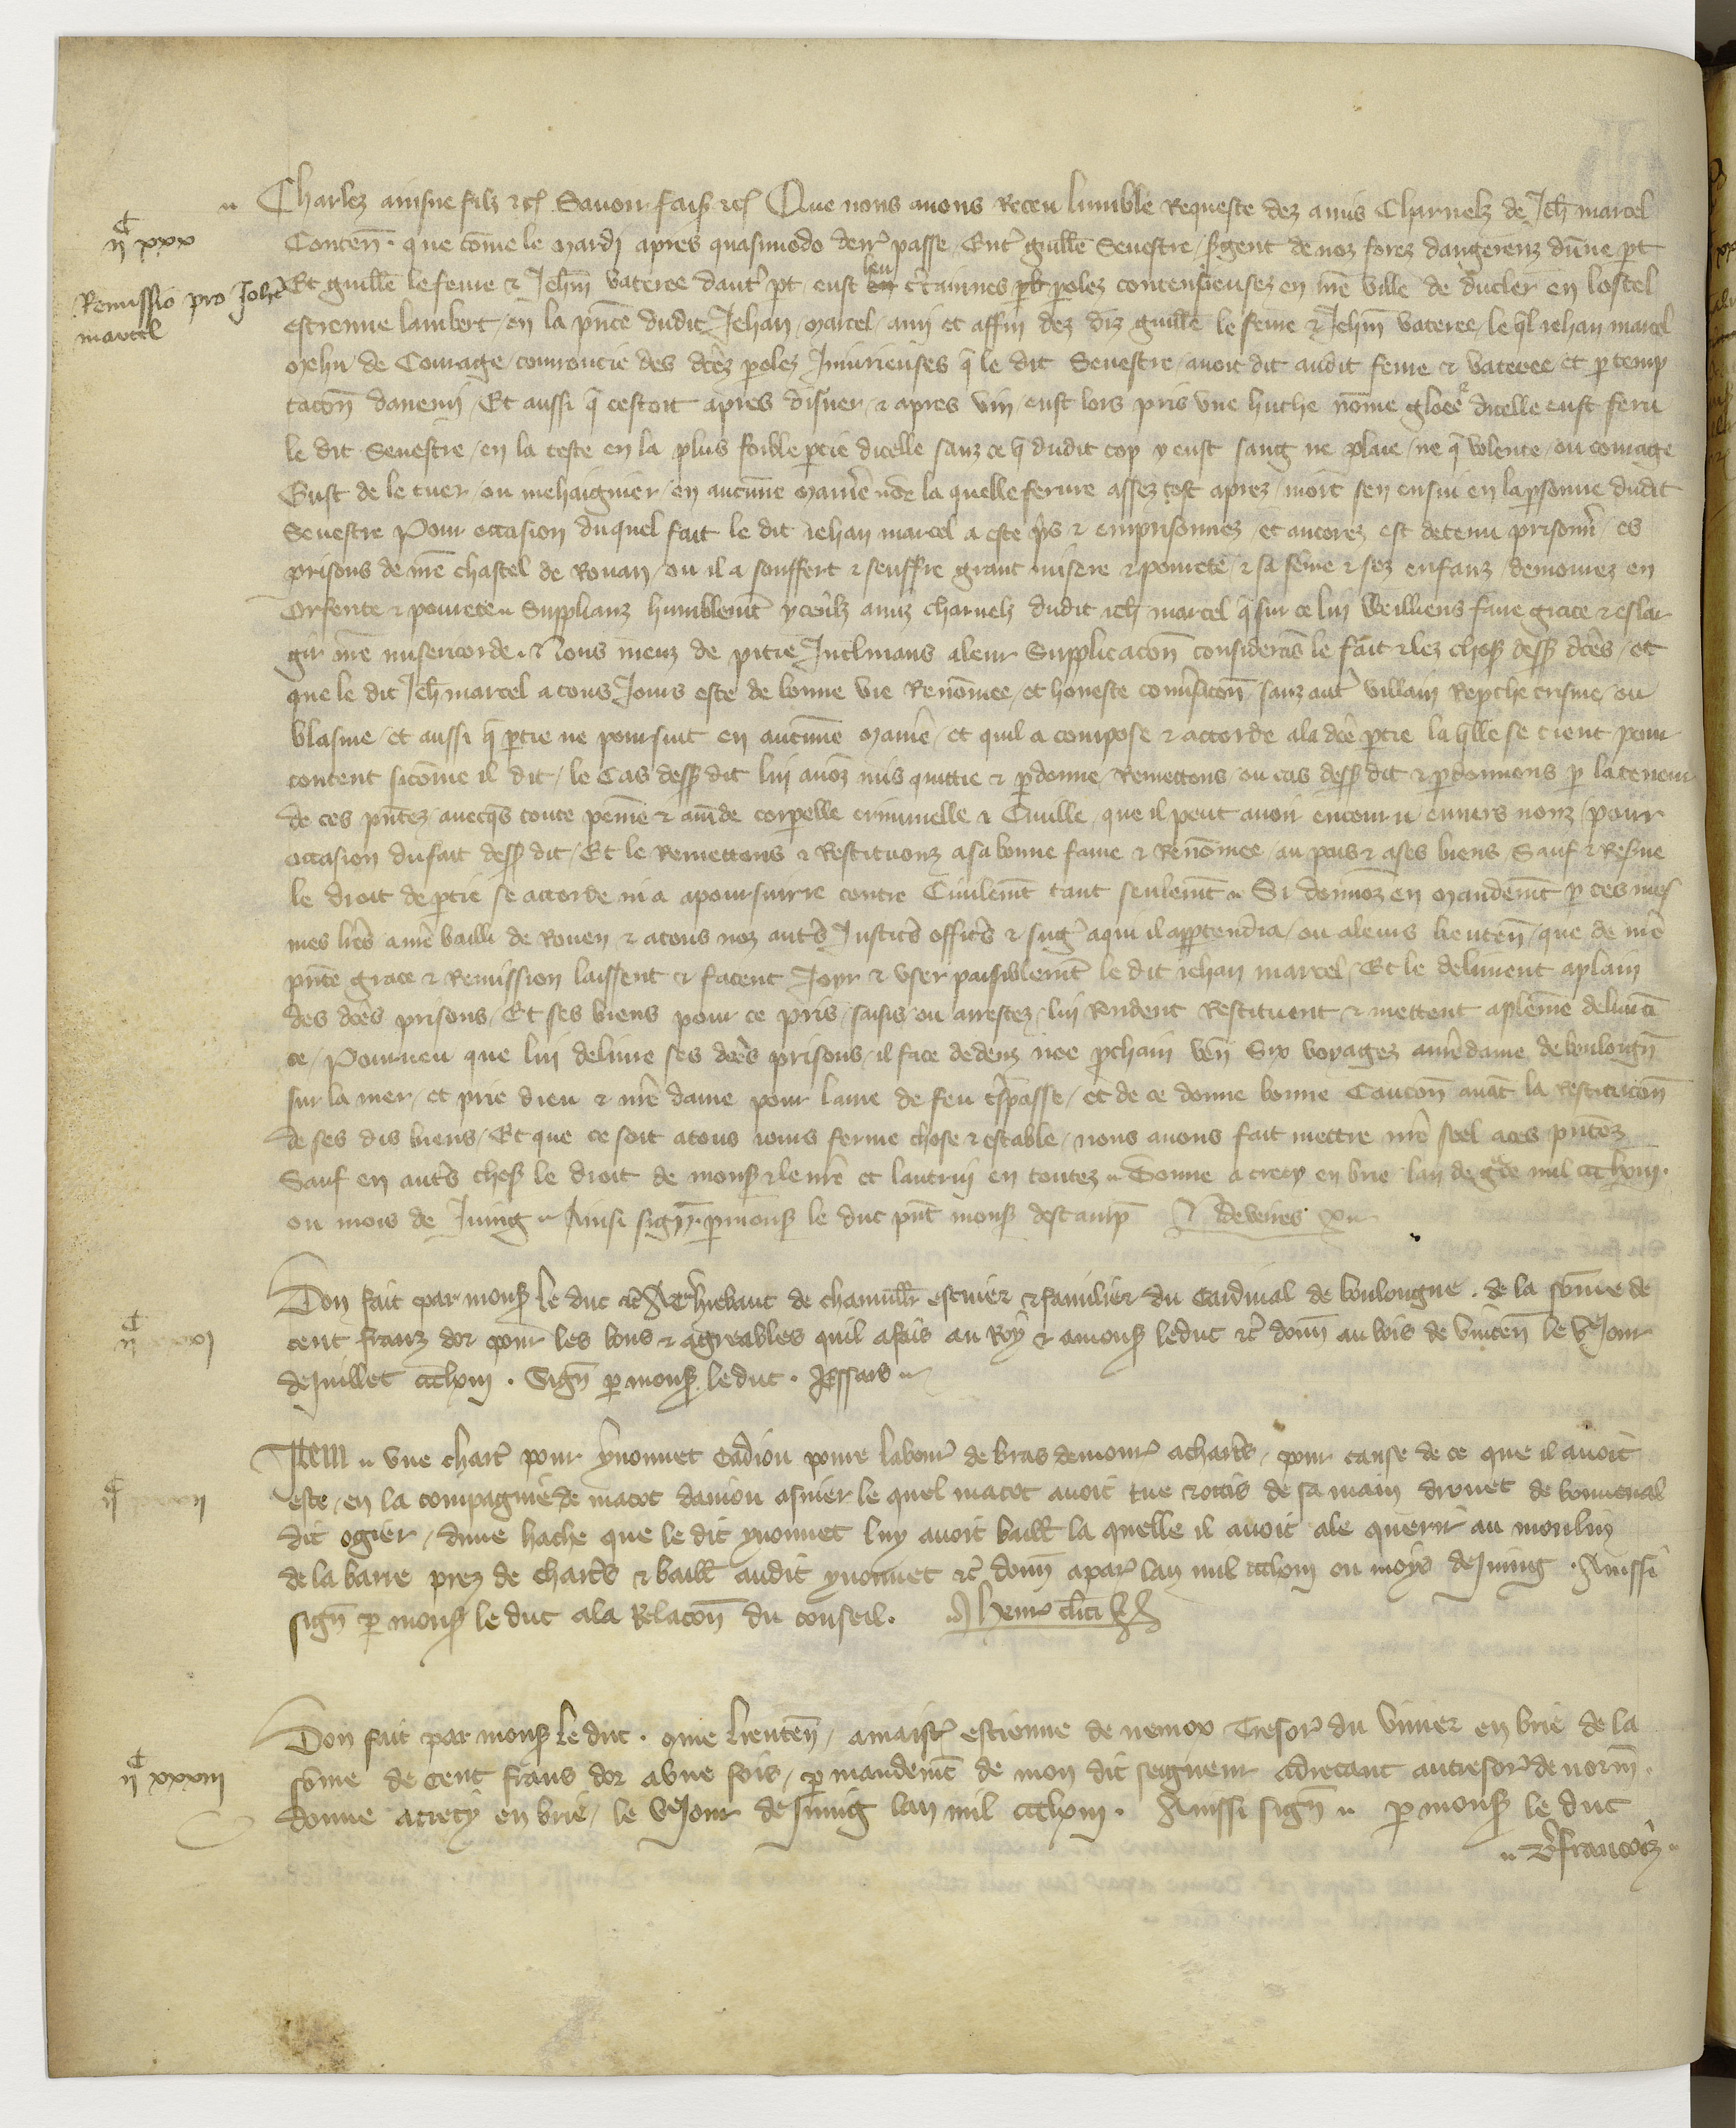 Charlez ainsne filz etc. Savoir fais etc. Que nous avons Receu lumble Requeste dez amis Charnelz de Jeh marcel
IIC XXX
Conten. que come le mardi apres quasimodo derr passe Ent guille Senestre sgent de noz forez dangereuz dune pt
Remissio pro Johe
marcel
Et guille le feme & Jehm vateree daut pt eust leu ctainnes poles contencieusez en nre ville de ducler en lostel
estienne lambert en la pnce dudit Jehan marcel ami et affin dez diz guille le feme & Jehm vateree le ql Jehan marcel
mehu de Courage courroucie des dcez poles Iniurieuses q le dit Senestre avoit dit audit feme & vateree et p temp
tacon danemi Et aussi q cestoit apres disner & apres vin eust lors pris une huche nome gloee dicelle eust feru
le dit Senestre en la teste en la plus foible ptie dicelle sanz ce q dudit cop y eust sang ne plaie ne q volente ou courage
Eust de le tuer ou mehaignier en aucune maniere de la quelle ferure assez tost aprez mort sen ensui en la psonne dudit
Senestre Pour occasion duquel fait le dit Jehan marcel a este pris & emprisonnez et ancorez est detenu prisonn es
prisons de nre chastel de Rouan ou il a souffert & seuffre grant misere & povrete & sa feme & sez enfanz demourez en
Orfente & povrete Supplianz humblemt yceulz amiz charnelz dudit Jeh marcel q sur ce lui Weilliens faire grace & eslar
gir nre misericorde. Nous meuz de pitie Inclinans a leur Supplicacon consideras le fait & lez choses dess dces et
que le dit Jeh marcel a tous Jours este de bonne vie Renomee et honeste convsacon sanz aut villain Repche crisme ou
blasme et aussi q ptie ne poursuit en aucune maniere et quil a compose & accorde a la dce ptie la qlle se tient pour
content sicome il dit le Cas dess dit lui avonz mis quittie & pdonne Remettons ou cas dess dit & pdonnons p la teneur
de ces pntez avecqs toute peine & amde corpelle criminelle & Civille que il peut avoir encouru envers nouz pour
occasion du fait dess dit Et le Remettons & Restituonz a sa bonne fame & Renomee au pais & a ses biens Sauf & Resve
le droit de ptie se accorde ni a a poursuirre contre Civilemt tant seulemt Si donnonz en mandemt p ces mes
mes lres a nre bailli de Rouen & a tous noz auts Justics offics & sug a qui il apptendra ou a leurs lieuten que de nre
pnte grace & Remission laissent & facent Joyr & user paisiblemt le dit Jehan marcel Et le delivrent a plain
des dces prisons Et ses biens pour ce pris saisis ou arrestez lui Rendent Restituent & mettent a pleine delivran
ce Pourveu que lui delivre ses dces prisons il face dedenz noe pchain ven Six voyagez a nre dame de boulongn
sur la mer et prie dieu & nre dame pour lame de feu tspasse et de ce donne bonne Caucon avat la Restitucon
de ses dis biens Et que ce soit a tous iours ferme chose & estable nous avons fait mettre nre seel a ces pntez
Sauf en auts choses le droit de mons & le nre et lautrui en toutez Donne a crecy en brie lan de gce mil CCCLXIII.
ou mois de Juing Ainsi sign. p mons le duc pnt mons destamp N de veires
IIC XXXI
Don fait par mons le duc etc A Thiebaut de chamill escuier & familier du Cardinal de boulongne. de la some de
cent franz dor pour les bons & agreables quil a fais au Roy & a mons le duc etc donn au bois de vincen le Ve Jour
de Juillet CCCLXIII. Sign p mons le duc. Essars
IIC XXXII
Item une chart pour ynonnet Cadiou povre labour de bras demour a charts pour cause de ce que il avoit
este en la compagnie de macot daniou asnier le quel macot avoit tue & occis de sa main drouet de bonneval
dit ogier dune hache que le dit ynonnet luy avoit baill la quelle il avoit ale querir au moulin
de la barre prez de charts & baill audit ynonnet etc donn a par lan mil CCCLXIII ou moys de Juing. Ainssi
sign p mons le duc a la Relacon du conseil. Henr clici
IIC XXXIII
Don fait par mons le duc. come lieuten a maist estienne de nemox Tresor du vivier en brie de la
some de cent frans dor a une fois p mandemt de mon dit seigneur adrecant au tresor de norm.
donne a crecy en brie le Ve Jour de Juing lan mil CCCLXIII. Ainssi sign p mons le duc
francois